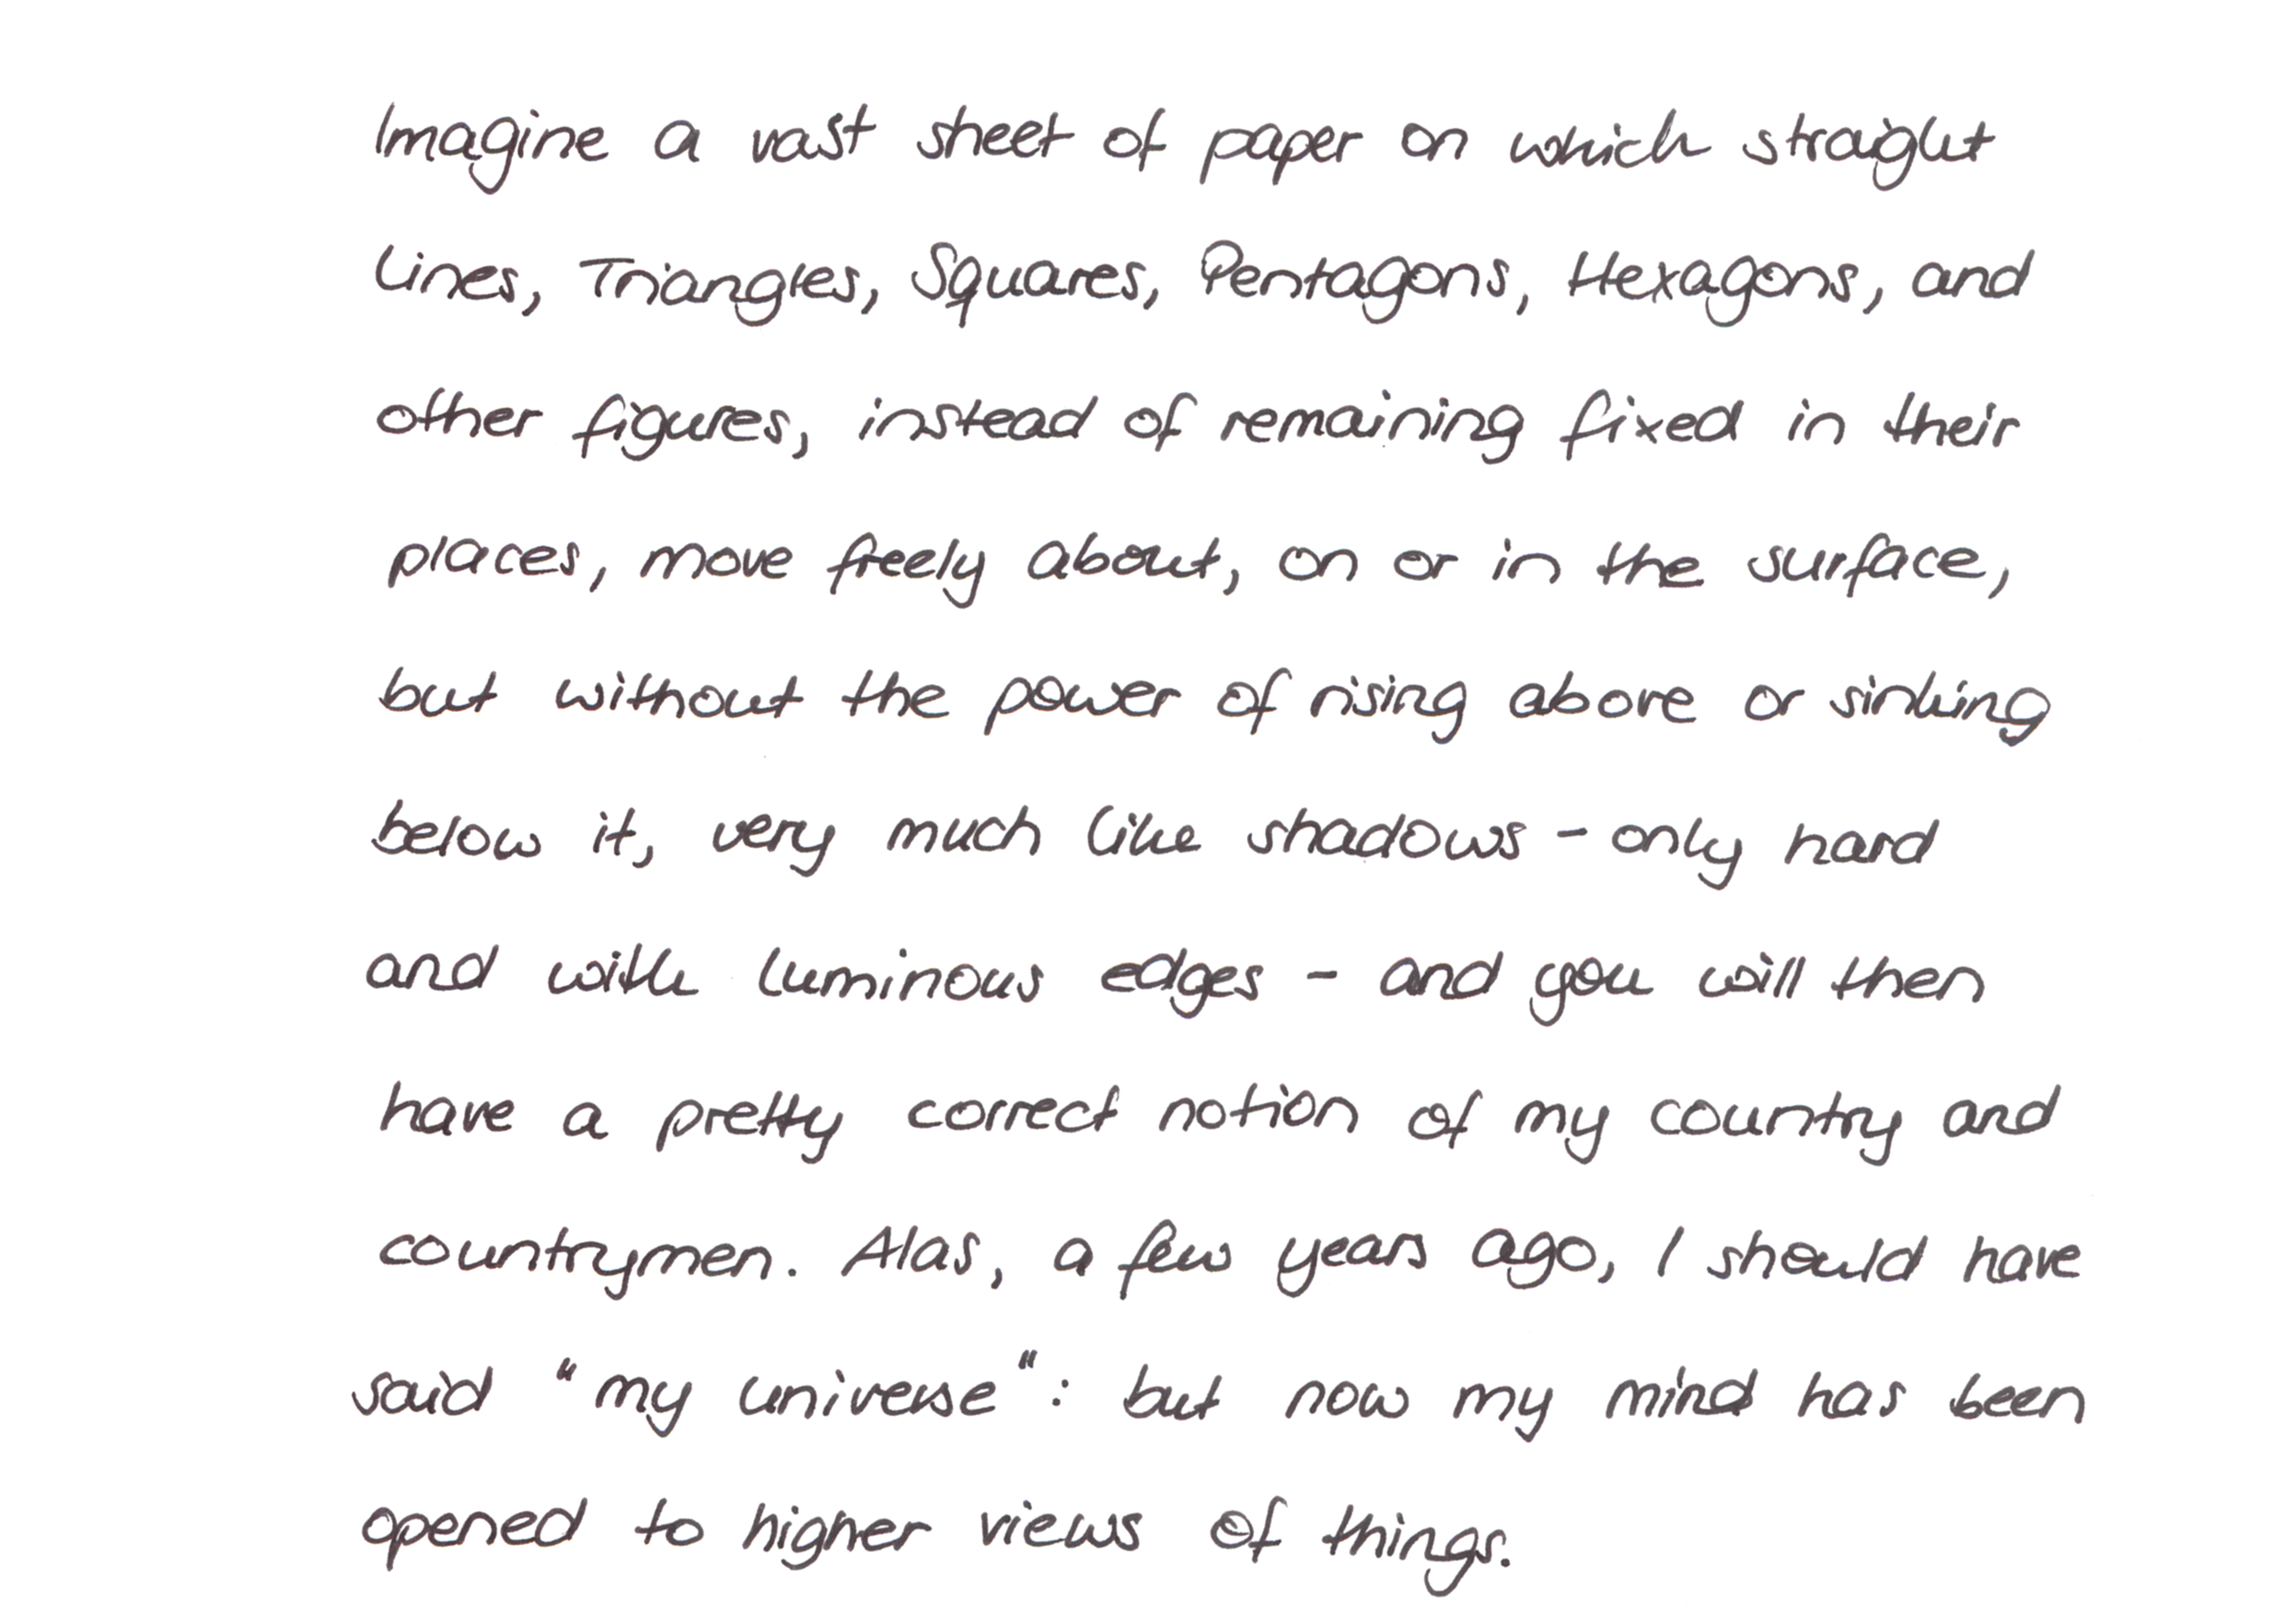 Imagine a vast sheet of paper on which straight
Lines, Triangles, Squares, Pentagons, Hexagons, and
other figures, instead of remaining fixed in their
places, move freely about, on or in the surface,
but without the power of rising above or sinking
below it, very much like shadows - only hard
and with luminous edges - and you will then
have a pretty correct notion of my country and
countrymen. Alas, a few years ago, I should have
said "my universe": but now my mind has been
opened to higher views of things.